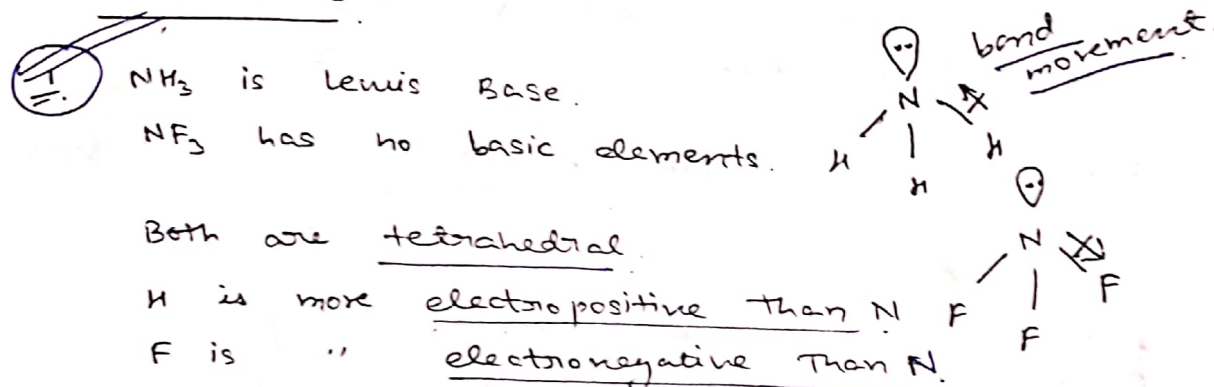 1.
NH3 is Lewis Base.
NF3 has no basic elements.
Both are tetrahedral
H is more electropositive than N
F is " electronegative Than N.
bond movement
N
H H H
N
F F F